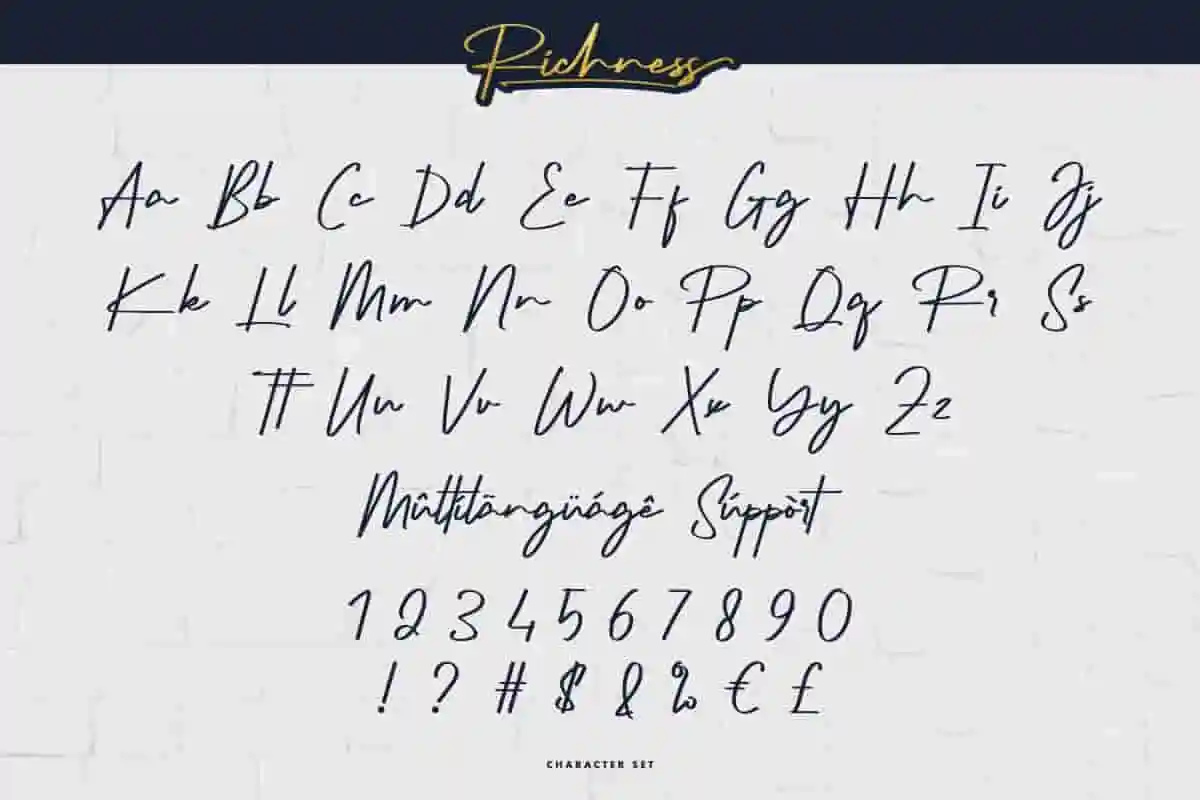 Richness
Aa Bb Cc Dd Ee Ff Gg Hh Ii Jj
Kk Ll Mm Nn Oo Pp Qq Rr Ss
Tt Uu Vv Ww Xx Yy Zz
Mûltílãngüágê Súppòrt
1 2 3 4 5 6 7 8 9 0
! ? # $ & % € £
CHARACTER SET